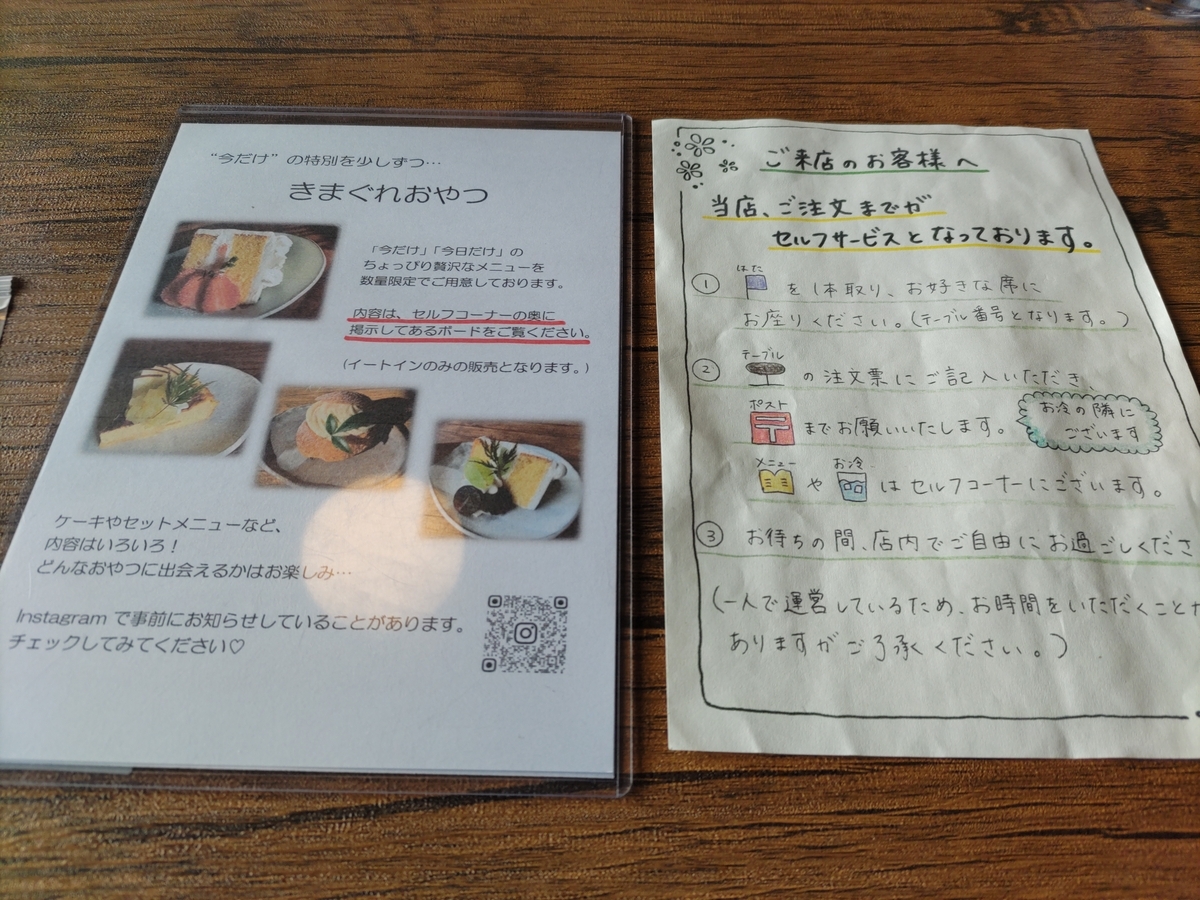 “今だけ”の特別を少しずつ…
きまぐれおやつ
「今だけ」「今日だけ」の
ちょっぴり贅沢なメニューを
数量限定でご用意しております。
内容は、セルフコーナーの奥に
掲示してあるボードをご覧ください。
(イートインのみの販売となります。)
ケーキやセットメニューなど、
内容はいろいろ！
どんなおやつに出会えるかはお楽しみ…
Instagram で事前にお知らせしていることがあります。
チェックしてみてください♡
ご来店のお客様へ
当店、ご注文までが
セルフサービスとなっております。
① はた を1本取り、お好きな席に
お座りください。(テーブル番号となります。)
② テーブル の注文票にご記入いただき、
ポスト までお願いいたします。
お冷の隣に
ございます
メニュー や お冷 はセルフコーナーにございます。
③ お待ちの間、店内でご自由にお過ごしくださ
(一人で運営しているため、お時間をいただくことが
ありますがご了承ください。)